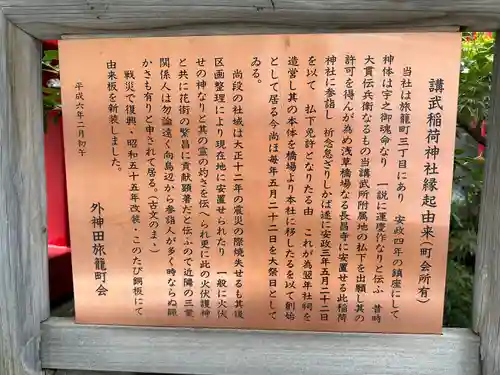 講武稲荷神社縁起由来(町会所有)
当社は旅籠町三丁目にあり 安政四年の鎮座にして
神体は宇之御魂命なり 一説に運慶作なりと伝ふ 昔時
大貫伝兵衛なるもの当講武所附属地の払下を出願し其の
許可を得んが為め浅草橋場なる長昌寺に安置せる此稲荷
神社に参詣し 祈念怠ざりしかば遂に安政三年五月二十二日
を以て 払下免許となりたる由 これが為翌年社祠を
造営し其の本体を橋場より本社に移したるを以て創始
として居る今尚ほ毎年五月二十二日を大祭日として
ゐる。
尚段の社域は大正十二年の震災の際焼失せるも其後
区画整理により現在地に安置せられたり 一般に火伏
せの神なりと其の霊の灼さを伝へられ更に此の火伏護神
と共に花街の繁昌に貢献顕著だと伝ふので近隣の三業
関係人は勿論遠く向島辺から参詣人が多く時ならぬ賑
かさも有りと申されて居る。(古文のまゝ)
戦災で復興・昭和五十五年改装・このたび銅板にて
由来板を新装しました。
平成六年二月初午
外神田旅籠町会